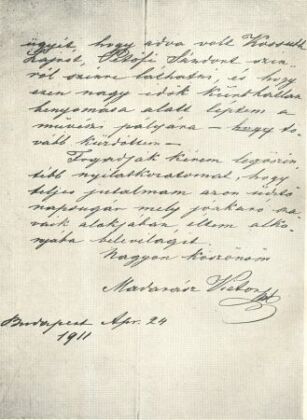 ügyét, hogy adva volt Kossuth
Lajost, Petőfi Sándort szin-
ről szinre láthatni, és hogy
ezen nagy idők
benyomása alatt léptem a
művész pályára – hogy to-
vább küzdöttem –
Fogadják kérem legőszin-
tébb nyilatkozatomat, hogy
teljes jutalmam azon
napsugár mely jóakaró sza-
vaik alakjában, éltem alko-
nyába belevilágit.
Nagyon köszönöm
Madarász Victor
Budapest Apr. 24
1911